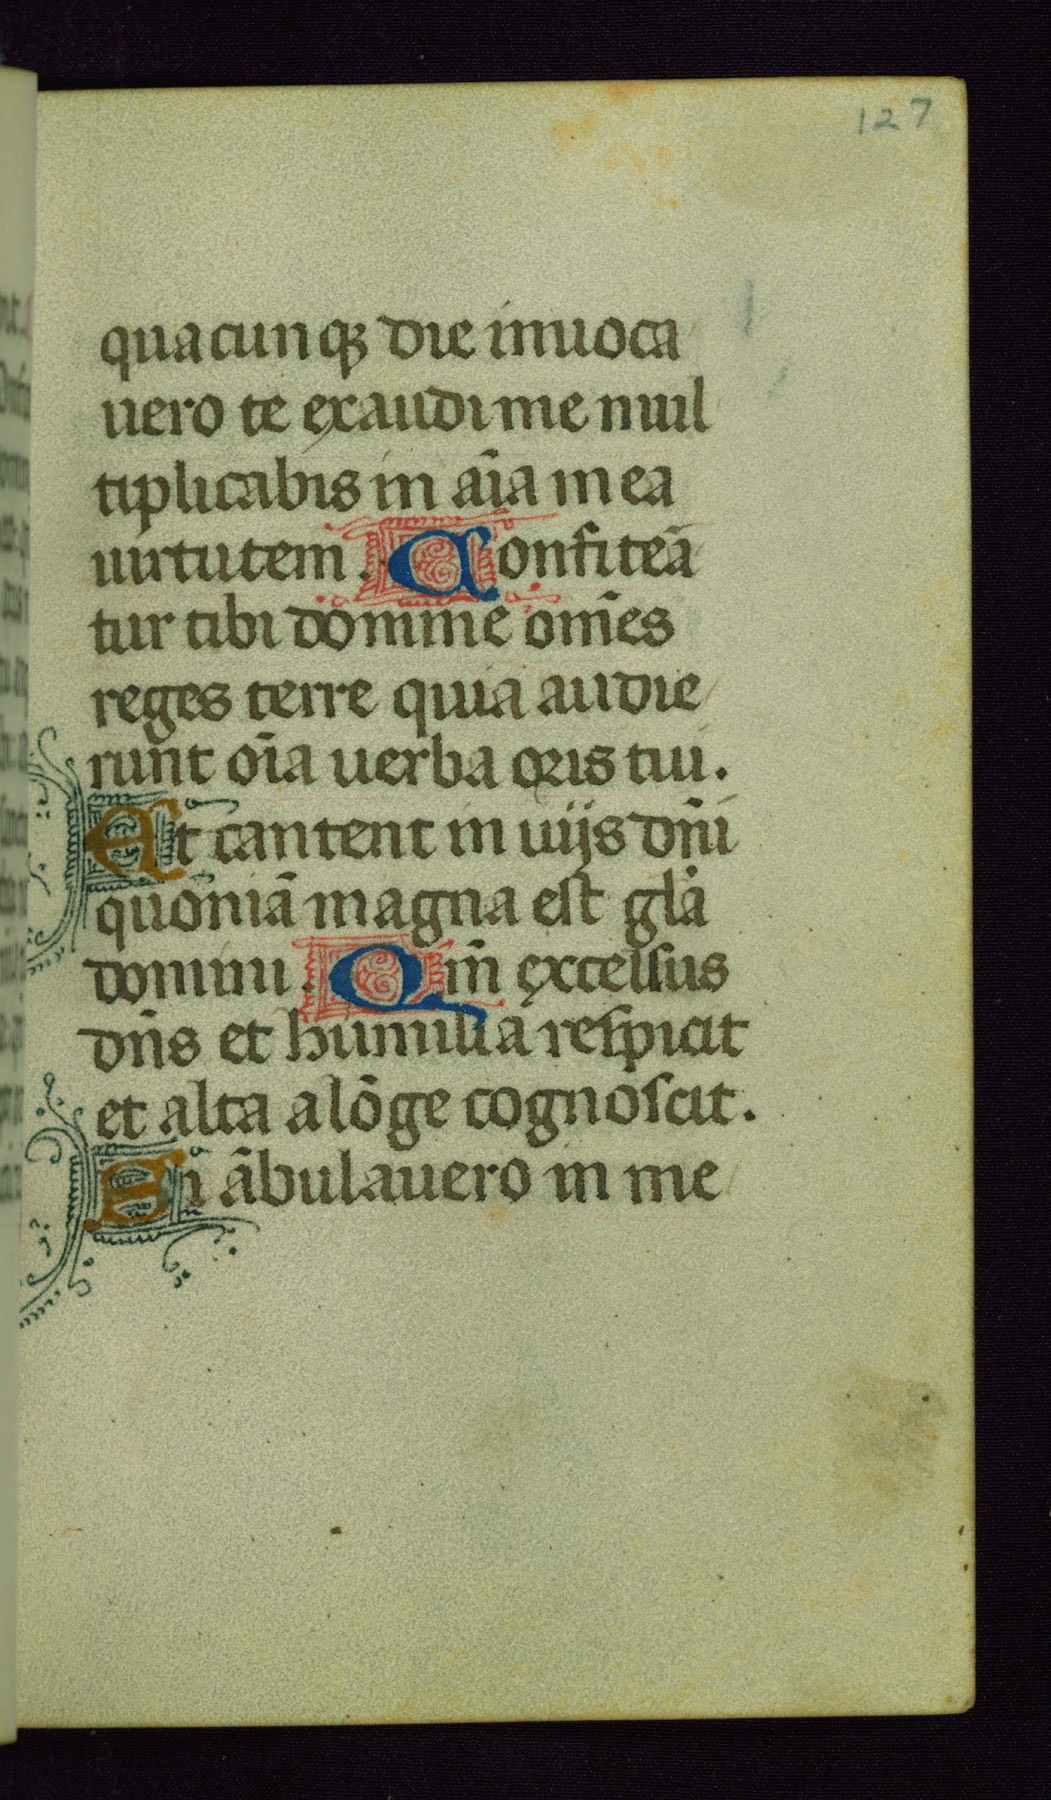 127
quacunqꝫ die inuoca
uero te exaudi me mul
tiplicabis in aīa mea
uirtutem. Confiteā
tur tibi domine om̄es
reges terre quia audie
runt oīa uerba oris tui.
Et cantent in uijs dn̄i
quoniā magna est glā
domini. Qm̄ excelsus
dn̄s et humilia respicit
et alta a lōge cognoscit.
Si ābulauero in me